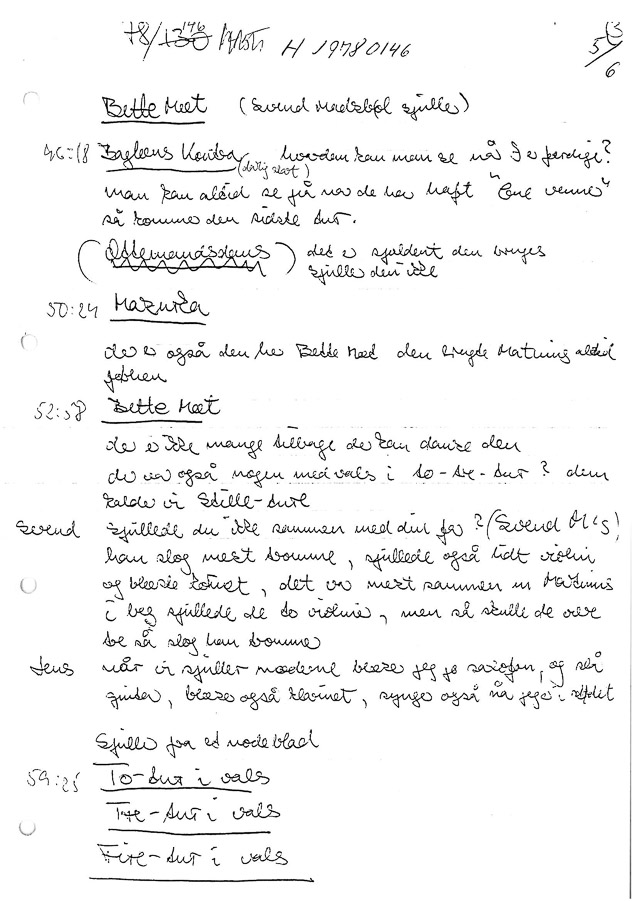 78/130 146 H 19780146
5/6
Bette Mæt (Svend Madsbøl spille)
46:18 Bagleens Kontra (dårlig start) hvordan kan man se når I er færdige?
man kan altid se på når de har haft "Ene venne"
så komme den sidste tur.
(Ottemandsdans) det er sjældent den bruges
spille den ikke
50:24 Mazurka
der er også den her Bette Mæt den brugte Mathinus altid
52:58 Bette Mæt
der er ikke mange tilbage der kan danse den
der var også nogen med vals i to-tre-tur? dem
kalde vi Stille-ture
Svend spillede du ikke sammen med din far? (Svend M's)
han slog mest tromme, spillede også lidt violin
og blæste kornet, det var mest sammen m Mathinus
i beg spillede de to violiner, men så skulle de være
tre så slog han tromme
Jens når vi spiller moderne blæser jeg jo saxofon, og slå
guitar, blæse også klarinet, synge også når jeg er i stødet
Spille fra et nodeblad
59:25 To-tur i vals
Tre-tur i vals
Fire-tur i vals